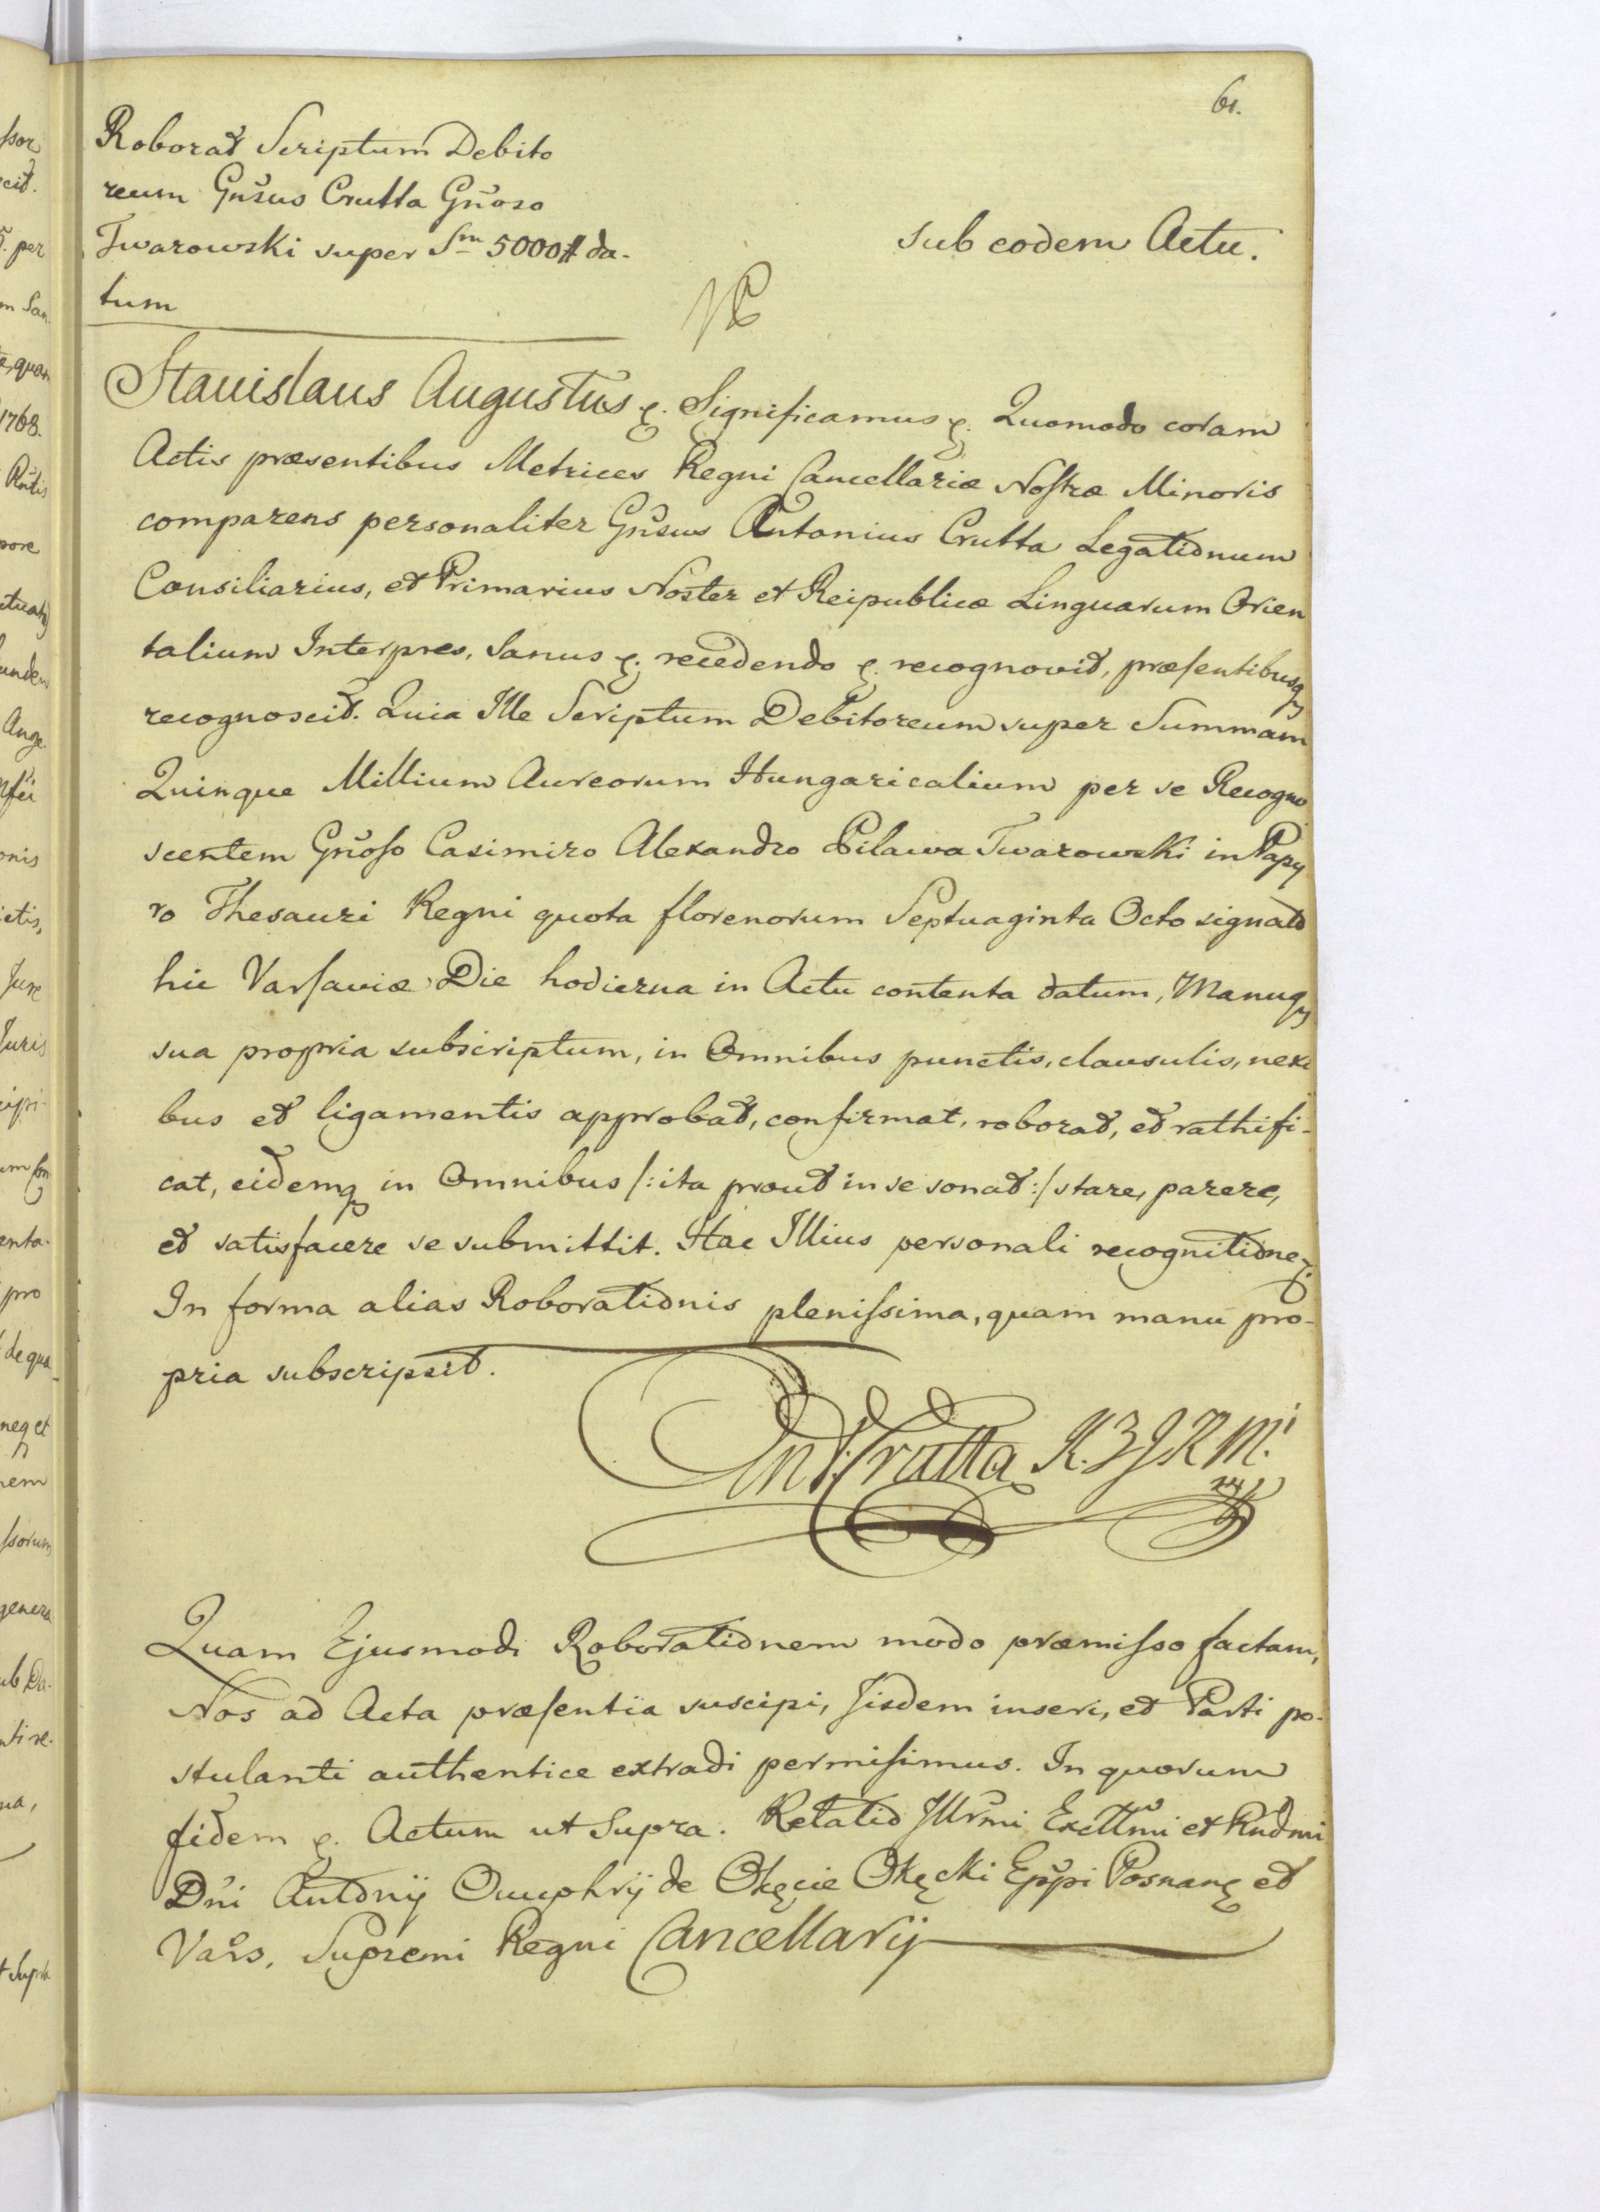 61.
Roborat Scriptum Debito
reum Gnsus Crutta Gnoso
Twarowski super Sm 5000 # da-
tum
sub eodem Actu.
Stanislaus Augustus etc. Significamus etc. Quomodo coram
Actis præsentibus Metrices Regni Cancellariæ Nostræ Minoris
comparens personaliter Gnsus Antonius Crutta Legationum
Consiliarius, et Primarius Noster et Reipublicæ Linguarum Orien
talium Interpres, Sanus etc. recedendo etc. recognovit, præsentibusq
recognoscit. Quia Ille Scriptum Debitoreum super Summam
Quinque Millium Aureorum Hungaricalium per se Recogno
scentem Gnoso Casimiro Alexandro Pilawa Twarowski in Papy
ro Thesauri Regni quota florenorum Septuaginta Octo signato
hic Varsaviæ Die hodierna in Actu contenta datum, Manuq
sua propria subscriptum, in Omnibus punctis, clausulis, nexi
bus et ligamentis approbat, confirmat, roborat, et rathifi-
cat, eidemq in Omnibus /: ita prout in se sonat :/ stare, parere,
et satisfacere se submittit. Hac Illius personali recognitione etc.
In forma alias Roborationis plenissima, quam manu pro-
pria subscripsit.
Ant. Crutta K. Z J K M.
Quam Ejusmodi Roborationem modo præmisso factam,
Nos ad Acta præsentia suscipi, Iisdem inseri, et Parti po-
stulanti authentice extradi permisimus. In quorum
fidem etc. Actum ut Supra. Relatio Illrmi Excllmi et Rndmi
Dni Antonij Onuphrij de Okęcie Okęcki Eppi Posnan et
Vars, Supremi Regni Cancellarij